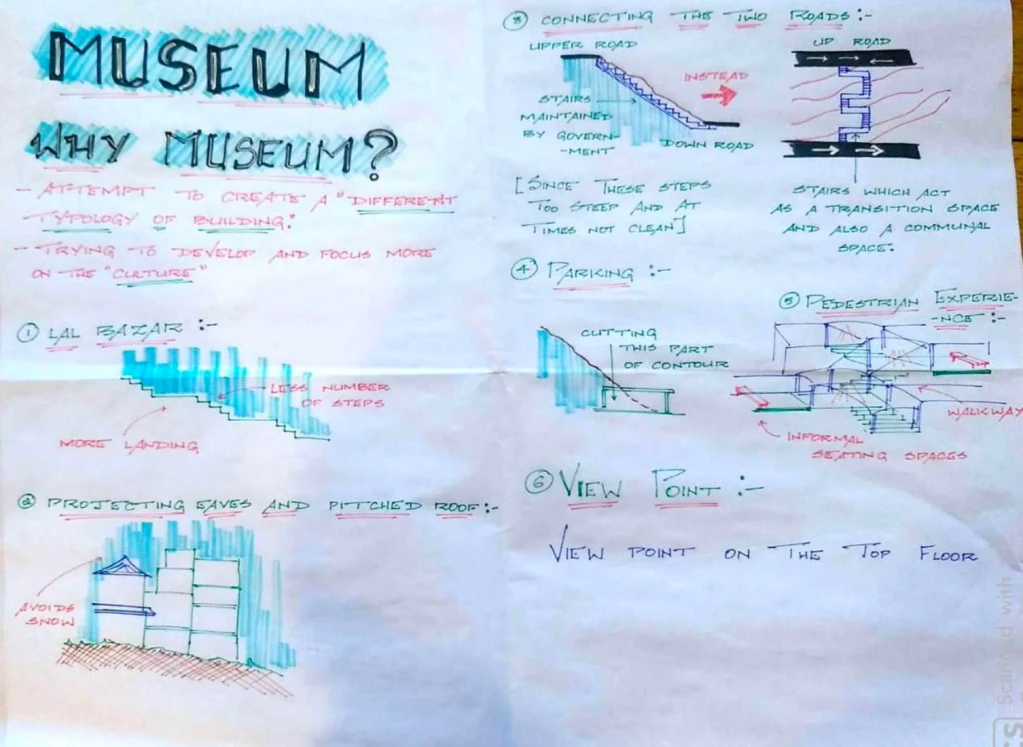 MUSEUM
WHY MUSEUM?
- ATTEMPT TO CREATE A "DIFFERENT
TYPOLOGY OF BUILDING:
- TRYING TO DEVELOP AND FOCUS MORE
ON THE "CULTURE"
① LAL BAZAR :-
LESS NUMBER
OF STEPS
MORE LANDING
② PROJECTING EAVES AND PITCHED ROOF:-
AVOIDS
SNOW
③ CONNECTING THE TWO ROADS:-
UPPER ROAD
STAIRS
MAINTAINED
BY GOVERN-
-MENT
DOWN ROAD
INSTEAD
UP ROAD
[SINCE THESE STEPS
TOO STEEP AND AT
TIMES NOT CLEAN]
STAIRS WHICH ACT
AS A TRANSITION SPACE
AND ALSO A COMMUNAL
SPACE.
④ PARKING :-
CUTTING
THIS PART
OF CONTOUR
⑤ PEDESTRIAN EXPERIE-
-NCE :-
WALKWAY
INFORMAL
SEATING SPACES
⑥ VIEW POINT :-
VIEW POINT ON THE TOP FLOOR
Scanned with
CS